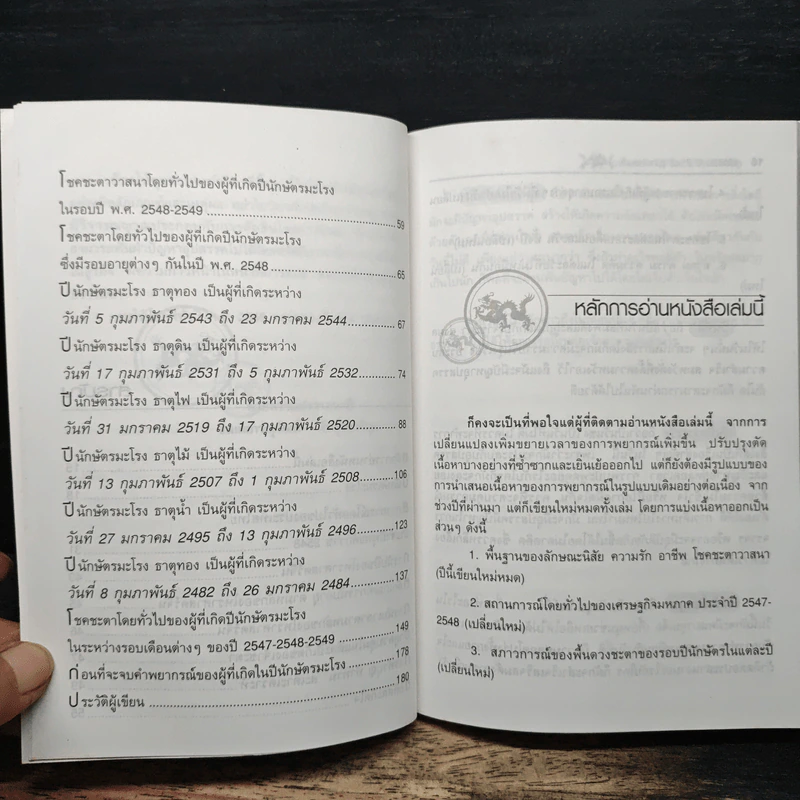 โชคชะตาวาสนาโดยทั่วไปของผู้ที่เกิดปีนักษัตรมะโรง
ในรอบปี พ.ศ. 2548-2549 59
โชคชะตาโดยทั่วไปของผู้ที่เกิดปีนักษัตรมะโรง
ซึ่งมีรอบอายุต่างๆ กันในปี พ.ศ. 2548 65
ปีนักษัตรมะโรง ธาตุทอง เป็นผู้ที่เกิดระหว่าง
วันที่ 5 กุมภาพันธ์ 2543 ถึง 23 มกราคม 2544 67
ปีนักษัตรมะโรง ธาตุดิน เป็นผู้ที่เกิดระหว่าง
วันที่ 17 กุมภาพันธ์ 2531 ถึง 5 กุมภาพันธ์ 2532 74
ปีนักษัตรมะโรง ธาตุไฟ เป็นผู้ที่เกิดระหว่าง
วันที่ 31 มกราคม 2519 ถึง 17 กุมภาพันธ์ 2520 88
ปีนักษัตรมะโรง ธาตุไม้ เป็นผู้ที่เกิดระหว่าง
วันที่ 13 กุมภาพันธ์ 2507 ถึง 1 กุมภาพันธ์ 2508 106
ปีนักษัตรมะโรง ธาตุน้ำ เป็นผู้ที่เกิดระหว่าง
วันที่ 27 มกราคม 2495 ถึง 13 กุมภาพันธ์ 2496 123
ปีนักษัตรมะโรง ธาตุทอง เป็นผู้ที่เกิดระหว่าง
วันที่ 8 กุมภาพันธ์ 2482 ถึง 26 มกราคม 2484 137
โชคชะตาโดยทั่วไปของผู้ที่เกิดปีนักษัตรมะโรง
ในระหว่างรอบเดือนต่างๆ ของปี 2547-2548-2549 149
ก่อนที่จะจบคำพยากรณ์ของผู้ที่เกิดในปีนักษัตรมะโรง 178
ประวัติผู้เขียน 180
หลักการอ่านหนังสือเล่มนี้
ก็คงจะเป็นที่พอใจแด่ผู้ที่ติดตามอ่านหนังสือเล่มนี้ จากการ
เปลี่ยนแปลงเพิ่มขยายเวลาของการพยากรณ์เพิ่มขึ้น ปรับปรุงตัด
เนื้อหาบางอย่างที่ซ้ำซากและเยิ่นเย้อออกไป แต่ก็ยังต้องมีรูปแบบของ
การนำเสนอเนื้อหาของการพยากรณ์ในรูปแบบเดิมอย่างต่อเนื่อง จาก
ช่วงปีที่ผ่านมา แต่ก็เขียนใหม่หมดทั้งเล่ม โดยการแบ่งเนื้อหาออกเป็น
ส่วนๆ ดังนี้
1. พื้นฐานของลักษณะนิสัย ความรัก อาชีพ โชคชะตาวาสนา
(ปีนี้เขียนใหม่หมด)
2. สถานการณ์โดยทั่วไปของเศรษฐกิจมหภาค ประจำปี 2547-
2548 (เปลี่ยนใหม่)
3. สภาวการณ์ของพื้นดวงชะตาของรอบปีนักษัตรในแต่ละปี
(เปลี่ยนใหม่)